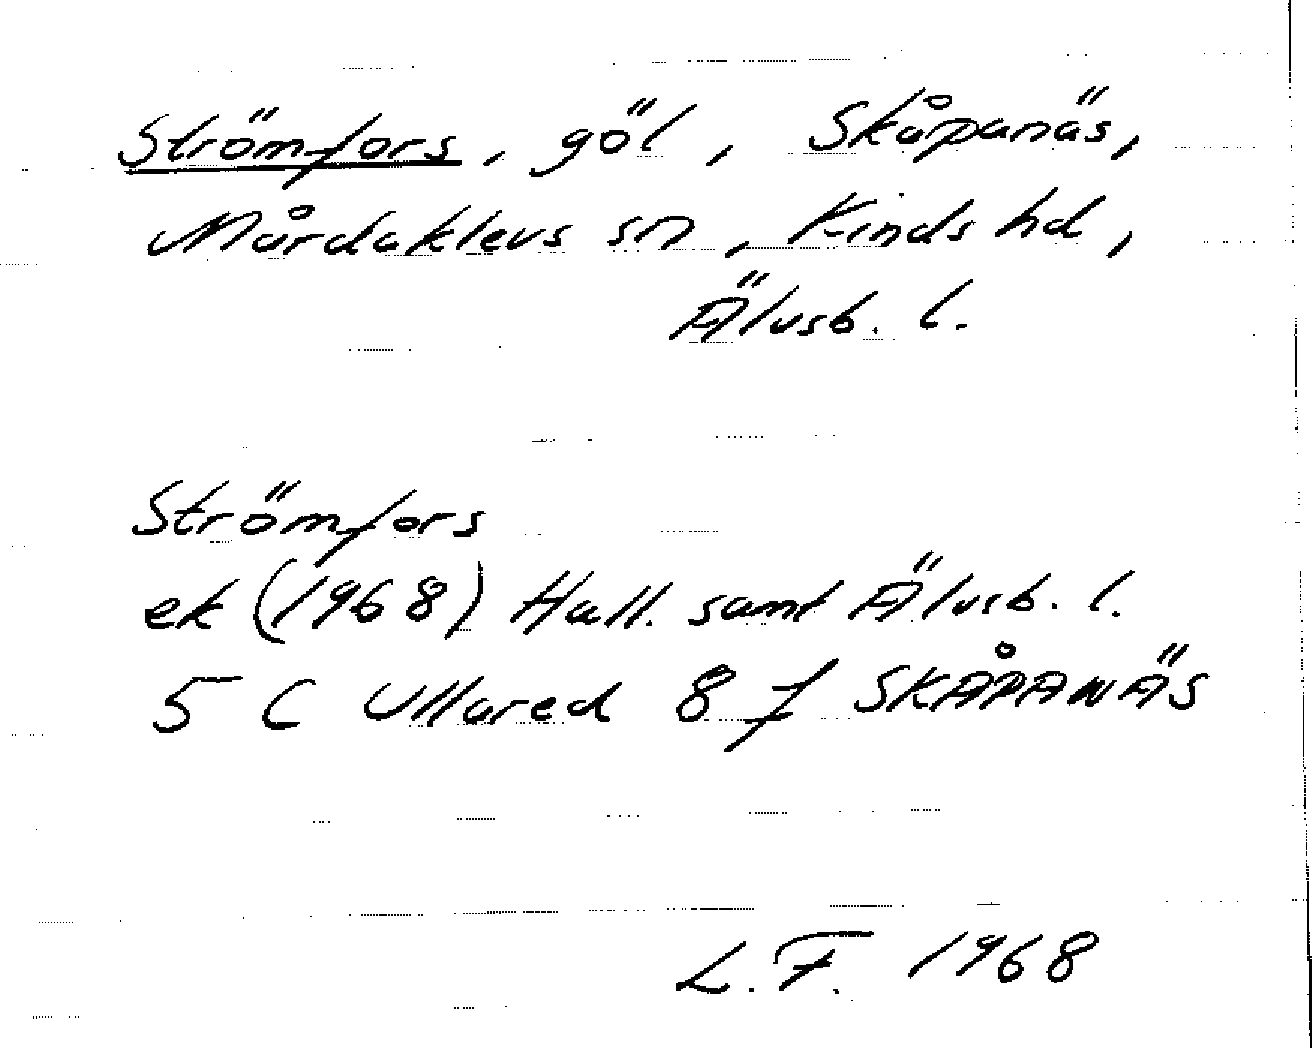 Strömfors, göl, Skåpanäs,
Mårdaklevs sn, Kinds hd,
Älvsb. l.
Strömfors
ek (1968) Hall. samt Älvsb. l.
5 C Ullared 8 f SKÅPANÄS
L.F. 1968